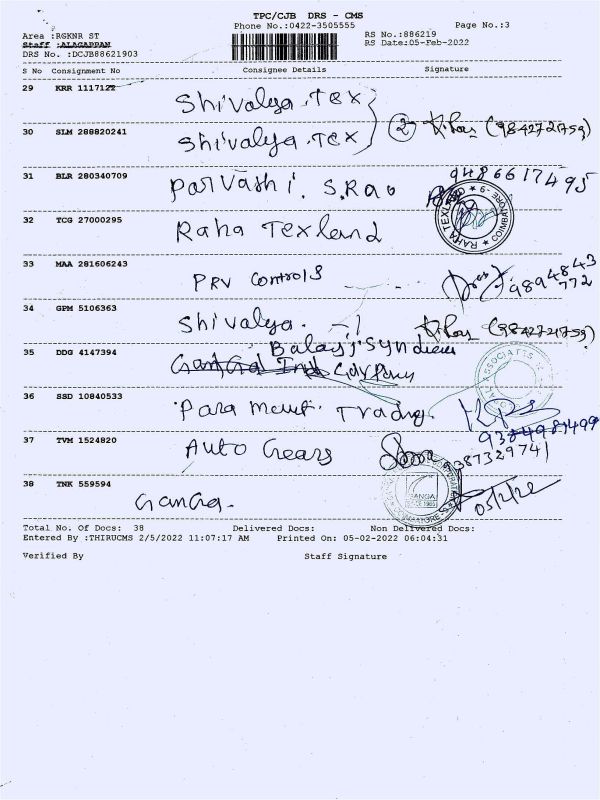 TPC/CJB DRS - CMS
Phone No.:0422-3505555 Page No.:3
Area :RGKNR ST RS No.:886219
Staff :ALAGAPPAN RS Date:05-Feb-2022
DRS No. :DCJB88621903
S No Consignment No Consignee Details Signature
29 KRR 1117122 Shivalya.Tex
30 SLM 288820241 Shivalya.Tex 2
31 BLR 280340709 Parvathi. S.Rao 9486617495
32 TCG 27000295 Raha Texland
RAHA TEXLAND COIMBATORE - 9
33 MAA 281606243 PRV Controls 9894843772
34 GPM 5106363 Shivalya. -11
35 DDG 4147394 Balagji Syndicus
ASSOCIATES
36 SSD 10840533 Para Meunt. Tradng. 9384981499
37 TVM 1524820 Auto Gears
38 TNK 559594 Ganga. 05/2/22
GANGA SINCE 1985
Total No. Of Docs: 38 Delivered Docs: Non Delivered Docs:
Entered By :THIRUCMS 2/5/2022 11:07:17 AM Printed On: 05-02-2022 06:04:31
Verified By Staff Signature